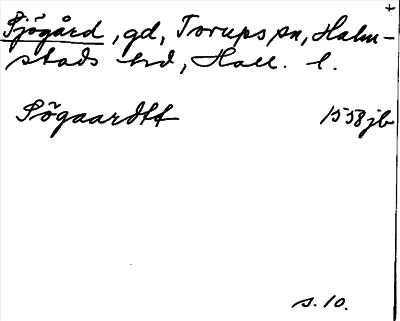 Sjögård, gd, Torups sn, Halm-
stads hd, Hall. l.
Sögaardtt 1558 jb
s. 10.